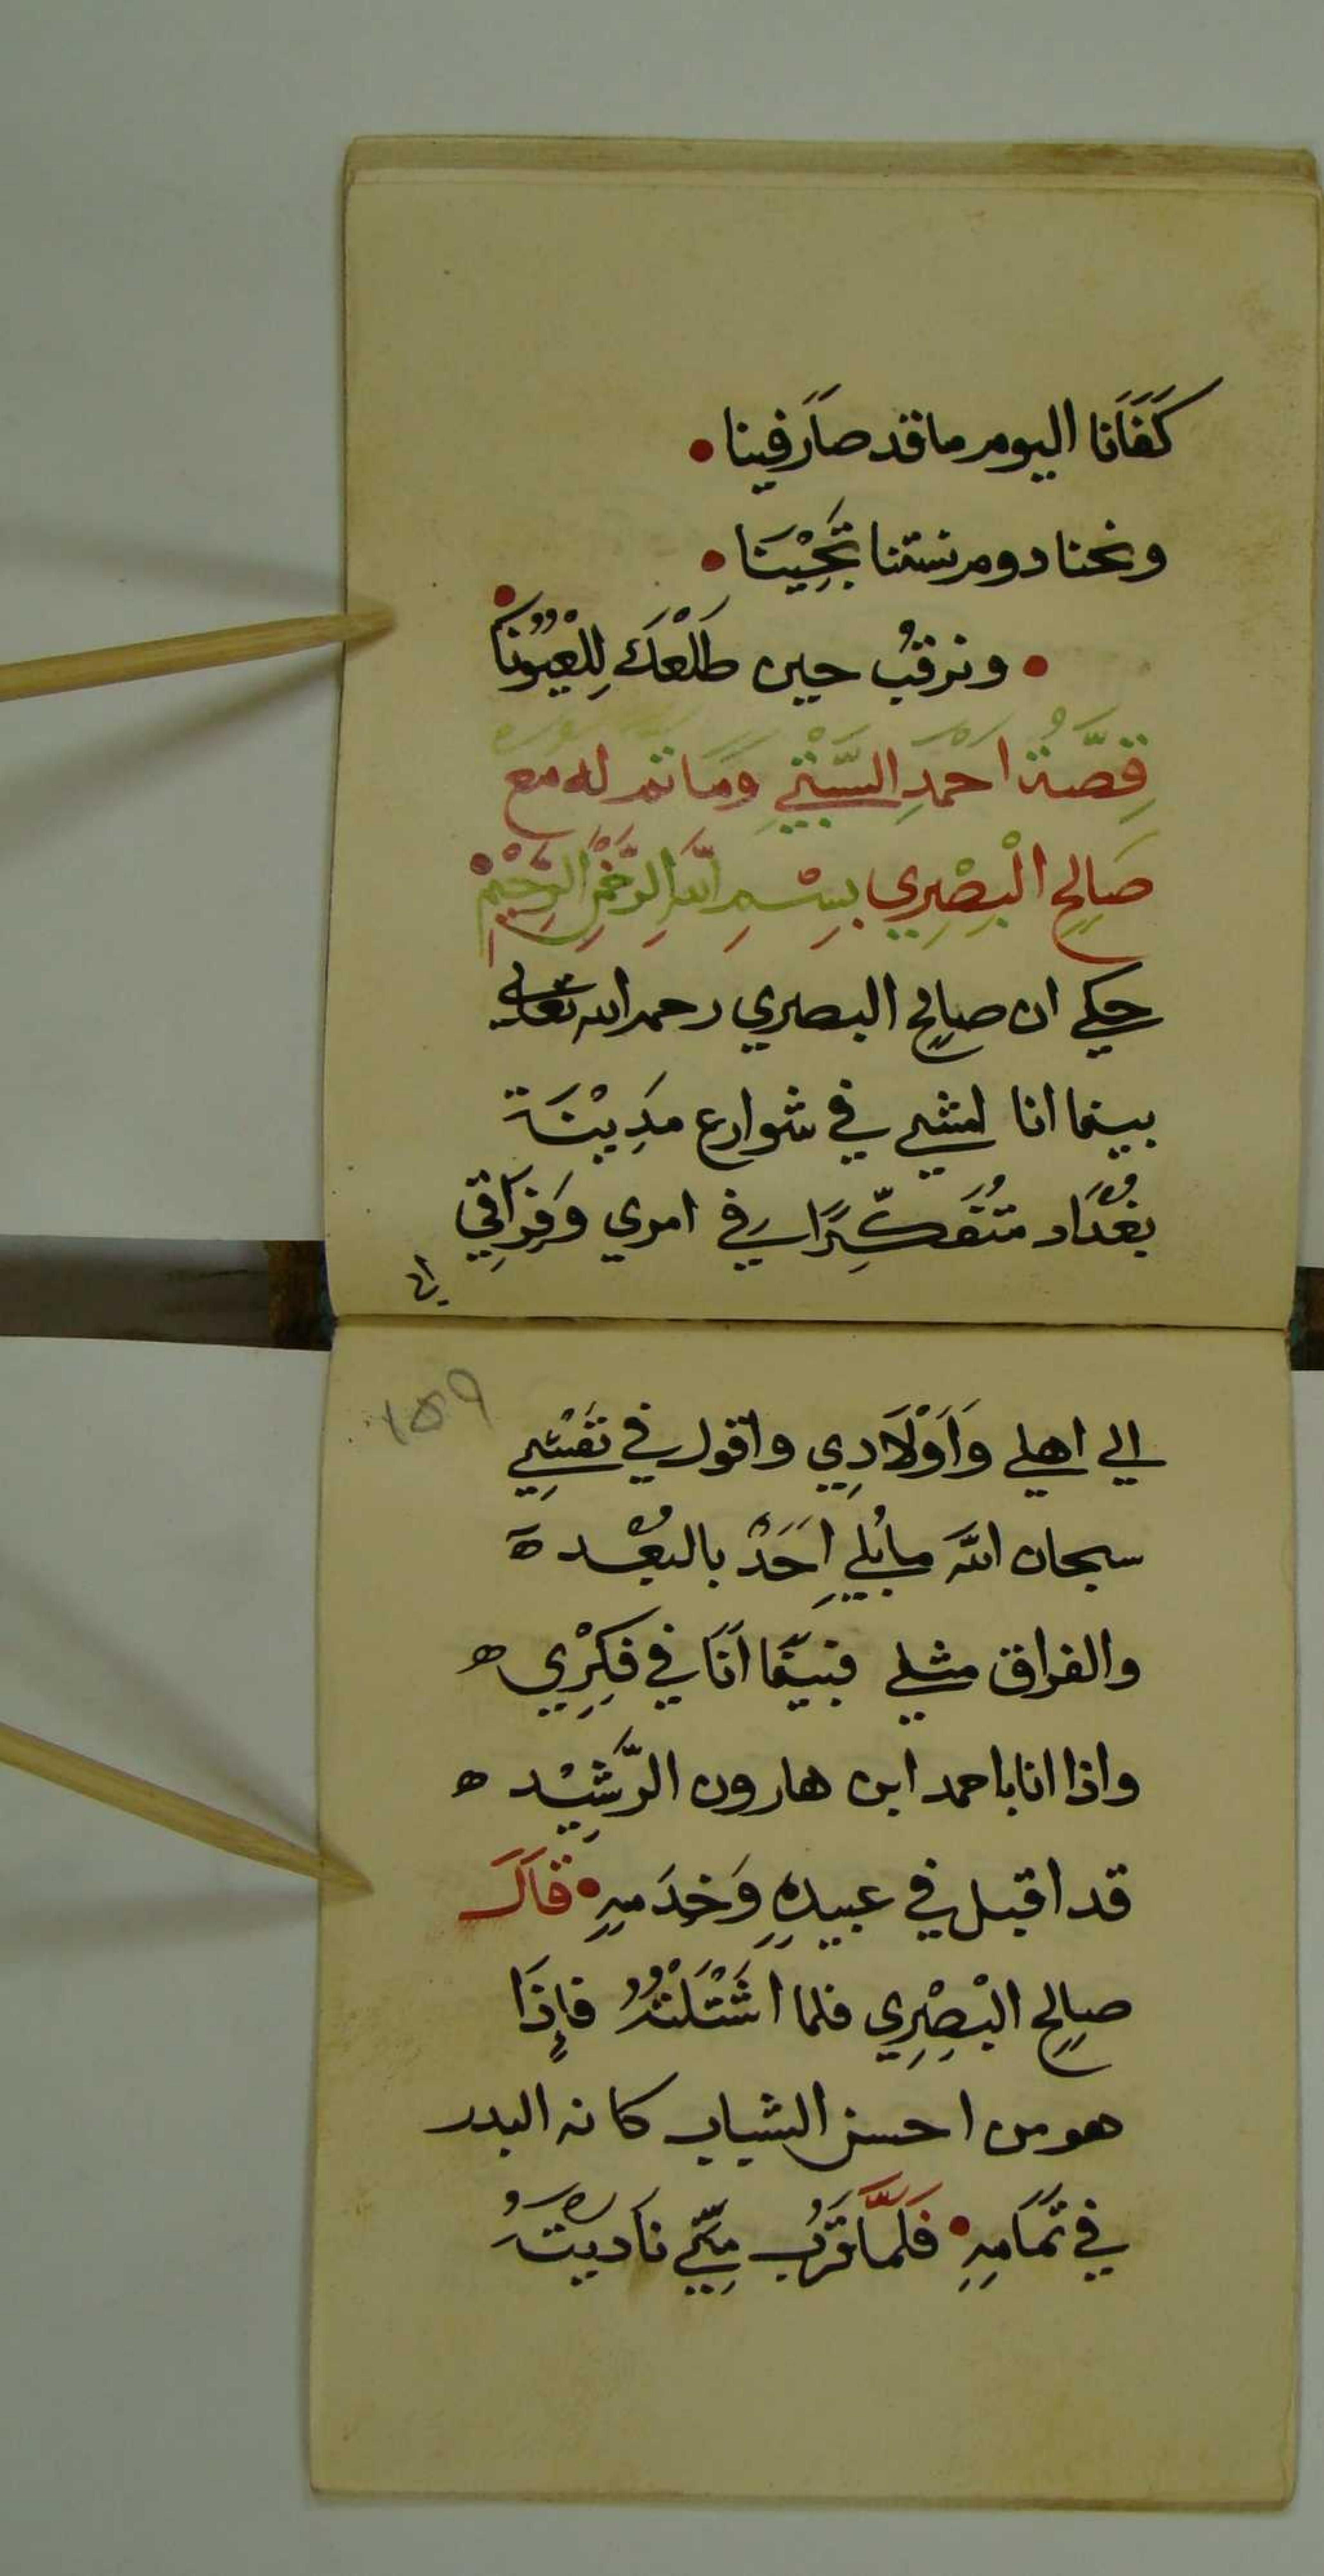 كَفَانَا اليوم ما قد صَارَ فينا •
ونحنا دوم نستنا تَجِيْنَا •
• ونرقبُ حين طَلْعَكَ لِلْعيُونَا •
قِصَّةُ احْمَدِ السَّبْتِي وَمَا تم له مع
صَالِحِ الْبِصْرِي بِسْمِ اللَّهِ الرَّحْمنِ الرَّحِيْمِ
حكي ان صالِح البصري رحمه الله تعالى
بينما انا امشي في شوارع مَدِيْنَة
بغْدَاد مُتَفَكِّرًا في امري وَفِرَاقِي
الي
١٥٩
الي اهلي وَأَوْلَادِي واقول في نَفْسِي
سبحان اللَّه ما بُلِي اَحَدْ بالبُعْد ة
والفراق مثلي فبينمَا اَنَا في فِكِرْي ه
واذا انا باحمد ابن هارون الرَّشِيْد ه
قد اقبل في عبيدِهِ وَخدَمِهِ • قَالَ
صالِح البْصِرِي فلما اشْتَلْتهُ فإِذَا
هو من احسن الشباب كانه البدر
في تَمَامِهِ • فَلَمَّا قَرُبَ مِنِّي نَادَيْتُهُ